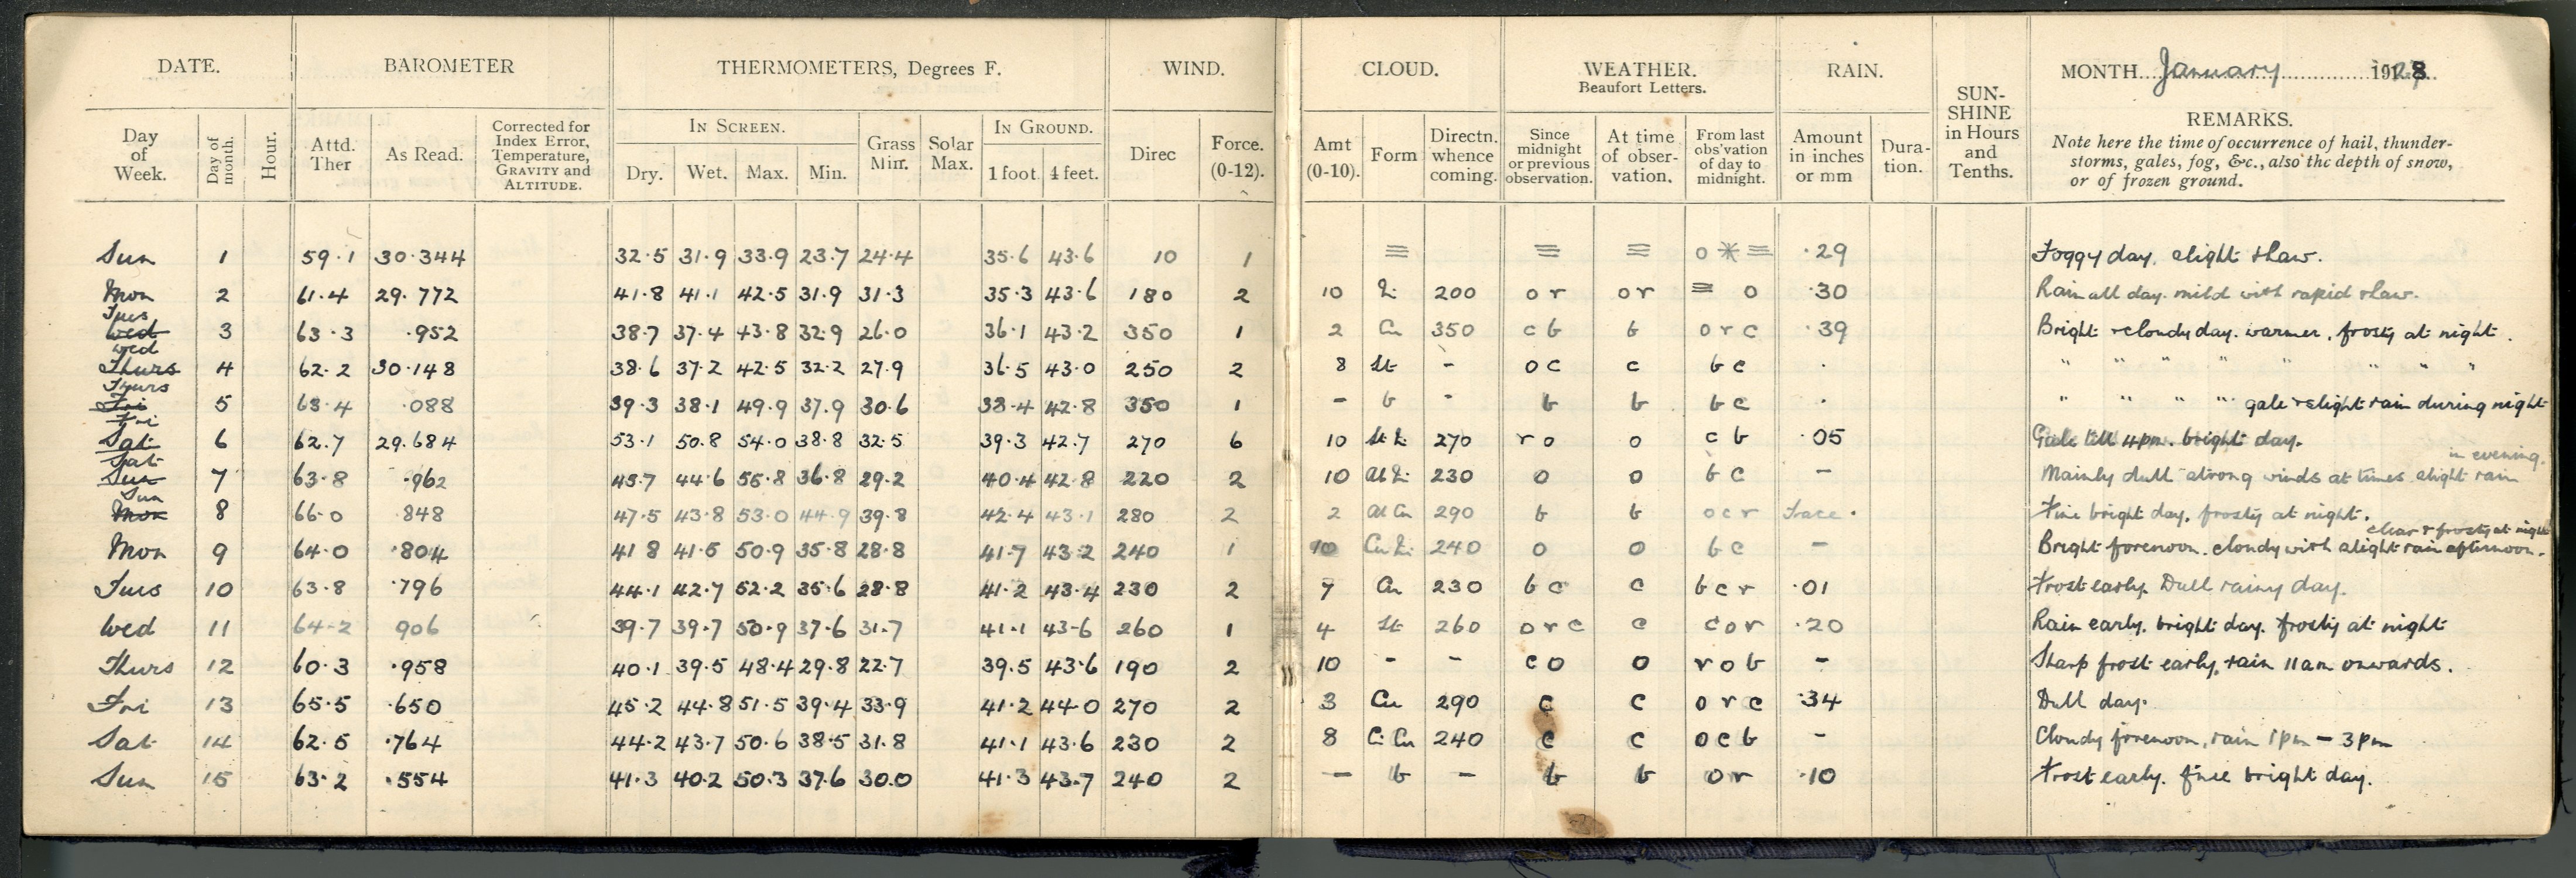 DATE. BAROMETER THERMOMETERS, Degrees F. WIND. CLOUD. WEATHER. Beaufort Letters. RAIN. SUN-SHINE in Hours and Tenths. MONTH January 1928
REMARKS.
Note here the time of occurrence of hail, thunder-
storms, gales, fog, &c., also the depth of snow,
or of frozen ground.
IN SCREEN. IN GROUND.
Day of Week. Day of month. Hour. Attd. Ther As Read. Corrected for Index Error, Temperature, GRAVITY and ALTITUDE. Dry. Wet. Max. Min. Grass Min. Solar Max. 1 foot. 4 feet. Direc Force. (0-12). Amt (0-10). Form Directn. whence coming. Since midnight or previous observation. At time of obser-vation. From last obs'vation of day to midnight. Amount in inches or mm Dura-tion.
Sun 1 59.1 30.344 32.5 31.9 33.9 23.7 24.4 35.6 43.6 10 1 ≡ ≡ ≡ o * ≡ .29 Foggy day. slight thaw.
Mon 2 61.4 29.772 41.8 41.1 42.5 31.9 31.3 35.3 43.6 180 2 10 200 o r o r ≡ o .30 Rain all day. mild with rapid thaw.
Tues
Wed 3 63.3 .952 38.7 37.4 43.8 32.9 26.0 36.1 43.2 350 1 2 Cu 350 c b b o r c .39 Bright & cloudy day. warmer. frosty at night.
Wed
Thurs 4 62.2 30.148 38.6 37.2 42.5 32.2 27.9 36.5 43.0 250 2 8 St - o c c b c . " " " " " " " "
Thurs
Fri 5 63.4 .088 39.3 38.1 49.9 37.9 30.6 38.4 42.8 350 1 - b - b b b c . " " " " gale & slight rain during night
Fri
Sat 6 62.7 29.684 53.1 50.8 54.0 38.8 32.5 39.3 42.7 270 6 10 270 r o o c b .05 Gale till 4pm. bright day.
Sat
Sun 7 63.8 .962 45.7 44.6 55.8 36.8 29.2 40.4 42.8 220 2 10 230 o o b c - Mainly dull strong winds at times slight rain in evening.
Sun
Mon 8 66.0 848 47.5 43.8 53.0 44.9 39.8 42.4 43.1 280 2 2 Al Cu 290 b b o c r Trace. Fine bright day. frosty at night.
Mon 9 64.0 .804 41 8 41.5 50.9 35.8 28.8 41.7 43.2 240 1 10 240 o o b c - Bright forenoon. cloudy with slight rain afternoon. clear & frosty at night
Tues 10 63.8 .796 44.1 42.7 52.2 35.6 28.8 41.2 43.4 230 2 7 Cu 230 b c c b c r .01 Frost early. Dull rainy day.
Wed 11 64.2 906 39.7 39.7 50.9 37.6 31.7 41.1 43.6 260 1 4 St 260 o r c c c o r .20 Rain early. bright day. frosty at night
Thurs 12 60.3 .958 40.1 39.5 48.4 29.8 22.7 39.5 43.6 190 2 10 - - c o o r o b - Sharp frost early. rain 11am onwards.
Fri 13 65.5 .650 45.2 44.8 51.5 39.4 33.9 41.2 44.0 270 2 3 Cu 290 c c o r c .34 Dull day.
Sat 14 62.5 .764 44.2 43.7 50.6 38.5 31.8 41.1 43.6 230 2 8 Ci Cu 240 c c o c b - Cloudy forenoon, rain 1pm - 3pm
Sun 15 63.2 .554 41.3 40.2 50.3 37.6 30.0 41.3 43.7 240 2 - b - b b o r .10 Frost early. fine bright day.